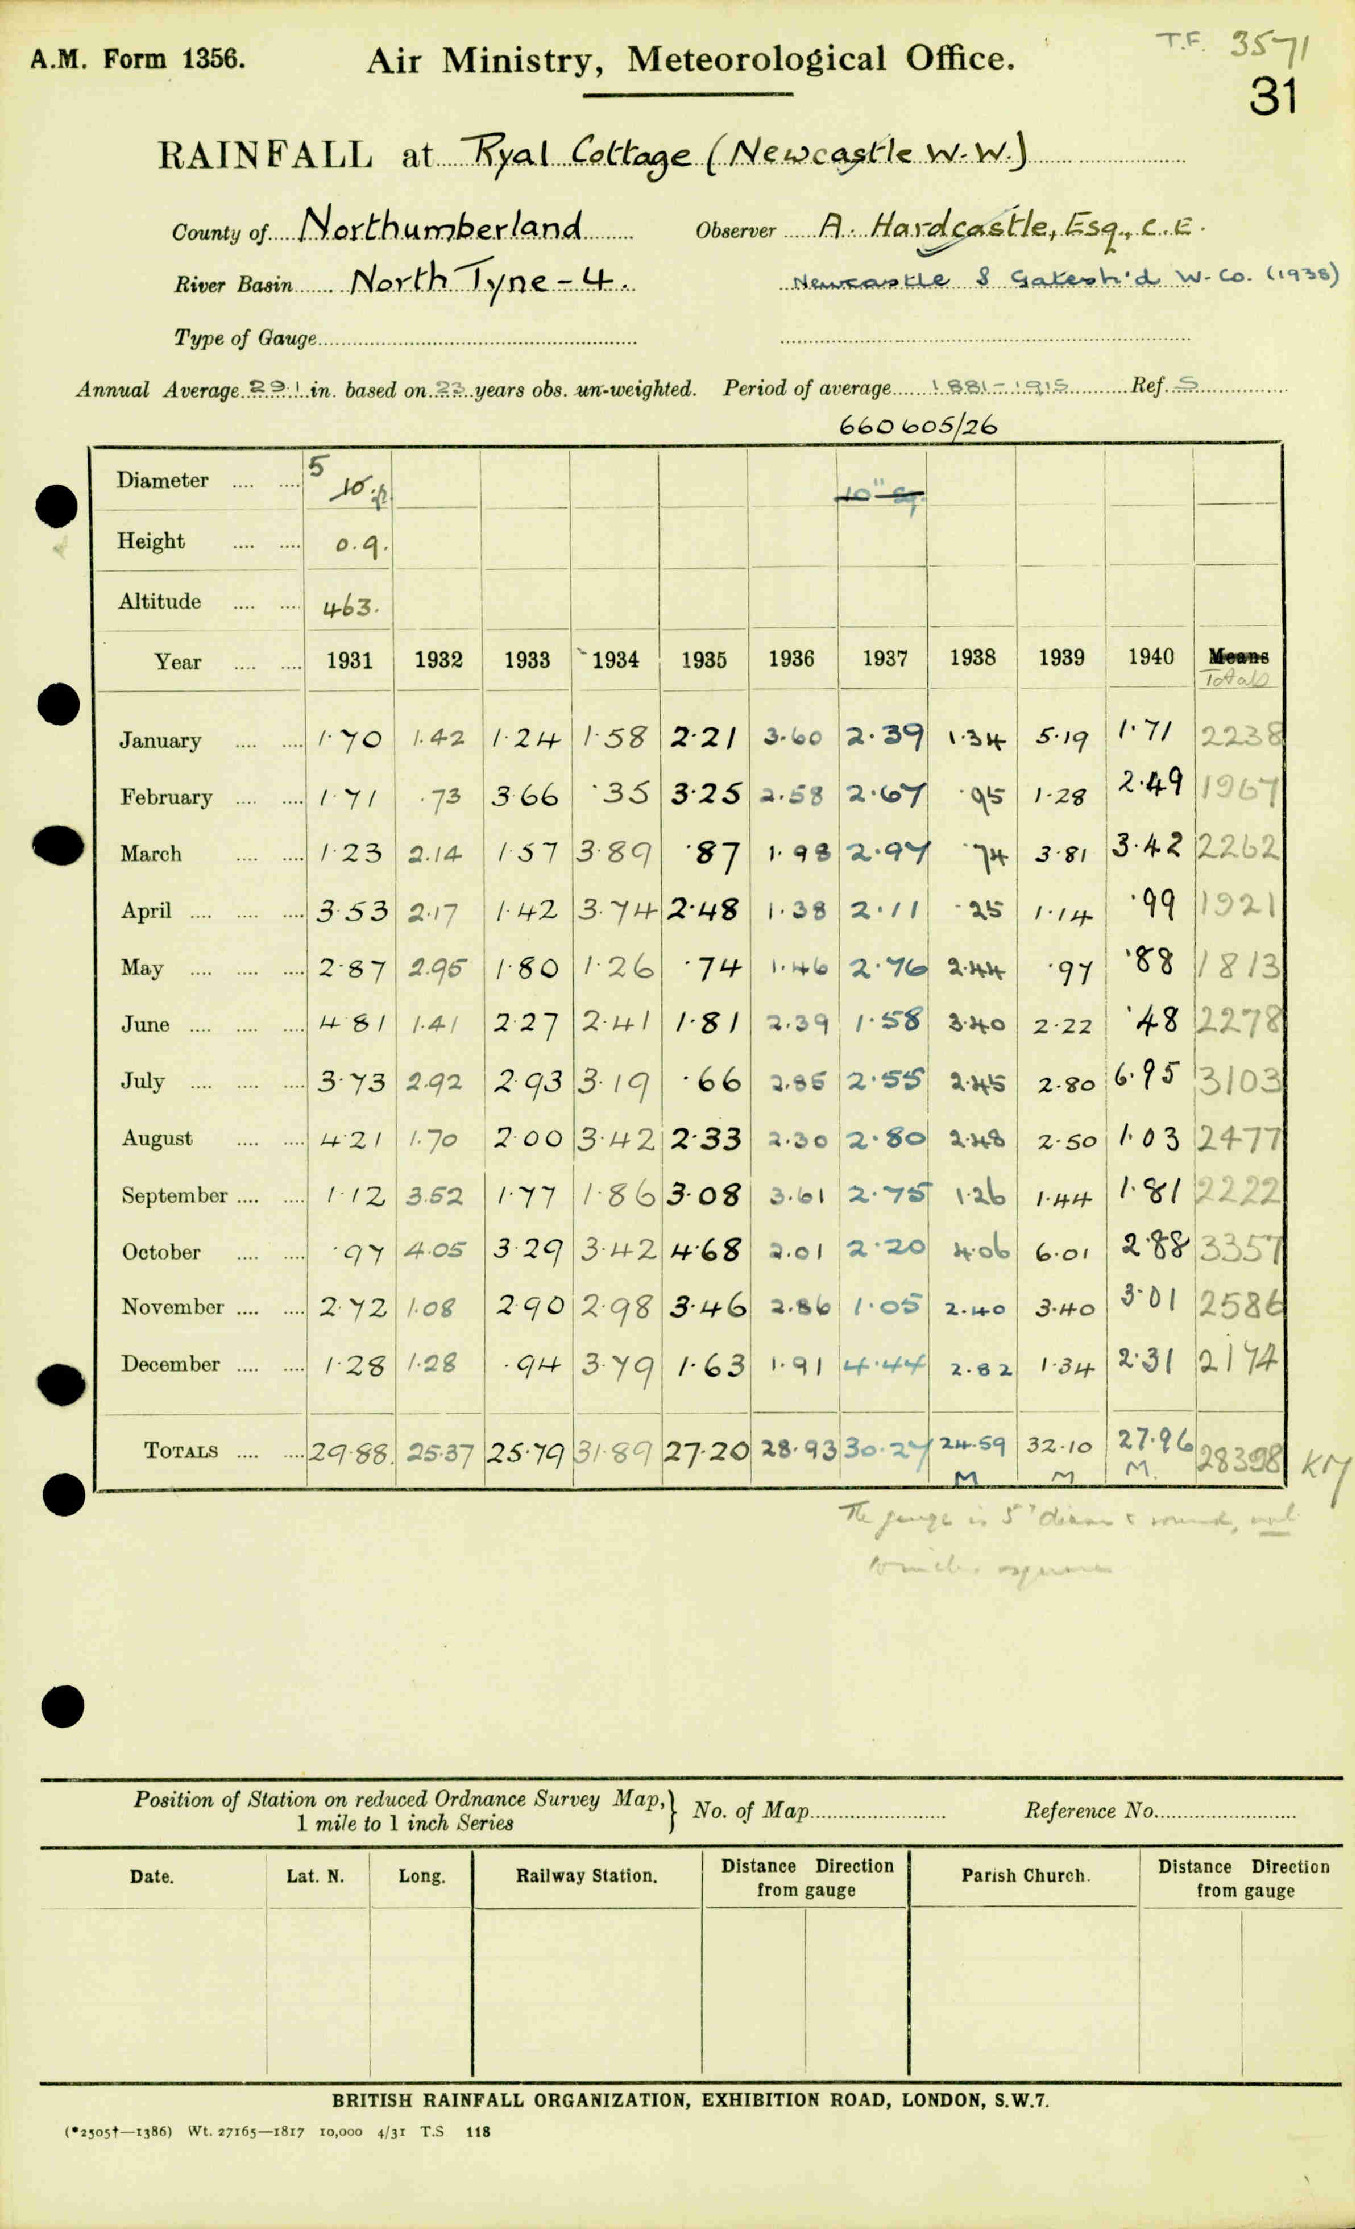 T.F. 3571
A.M. Form 1356. Air Ministry, Meteorological Office.
31
RAINFALL at Ryal Cottage (Newcastle W.W.)
County of Northumberland Observer A. Hardcastle, Esq., C.E.
River Basin North Tyne - 4. Newcastle & Gatesh'd W. Co. (1938)
Type of Gauge
Annual Average 29.1 in. based on 23 years obs. un-weighted. Period of average 1881-1915 Ref. S
660605/26
Diameter 5 10 10" sq.
Height 0.9.
Altitude 463.
Year 1931 1932 1933 1934 1935 1936 1937 1938 1939 1940 Means
Totals
January 1.70 1.42 1.24 1.58 2.21 3.60 2.39 1.34 5.19 1.71 2238
February 1.71 .73 3.66 .35 3.25 2.58 2.67 .95 1.28 2.49 1967
March 1.23 2.14 1.57 3.89 .87 1.98 2.97 .74 3.81 3.42 2262
April 3.53 2.17 1.42 3.74 2.48 1.38 2.11 .25 1.14 .99 1921
May 2.87 2.95 1.80 1.26 .74 1.46 2.76 2.44 .97 .88 1813
June 4.81 1.41 2.27 2.41 1.81 2.39 1.58 3.40 2.22 .48 2278
July 3.73 2.92 2.93 3.19 .66 2.85 2.55 2.45 2.80 6.95 3103
August 4.21 1.70 2.00 3.42 2.33 2.30 2.80 2.48 2.50 1.03 2477
September 1.12 3.52 1.77 1.86 3.08 3.61 2.75 1.26 1.44 1.81 2222
October .97 4.05 3.29 3.42 4.68 2.01 2.20 4.06 6.01 2.88 3357
November 2.72 1.08 2.90 2.98 3.46 2.86 1.05 2.40 3.40 3.01 2586
December 1.28 1.28 .94 3.79 1.63 1.91 4.44 2.82 1.34 2.31 2174
TOTALS 29.88 25.37 25.79 31.89 27.20 28.93 30.27 24.59 32.10 27.96 28398 KM
M M M.
The gauge is 5" diam & round, not
10 inches square
Position of Station on reduced Ordnance Survey Map,
1 mile to 1 inch Series } No. of Map Reference No.
Date. Lat. N. Long. Railway Station. Distance Direction from gauge Parish Church. Distance Direction from gauge
BRITISH RAINFALL ORGANIZATION, EXHIBITION ROAD, LONDON, S.W.7.
(*2505†—1386) Wt. 27165—1817 10,000 4/31 T.S 118